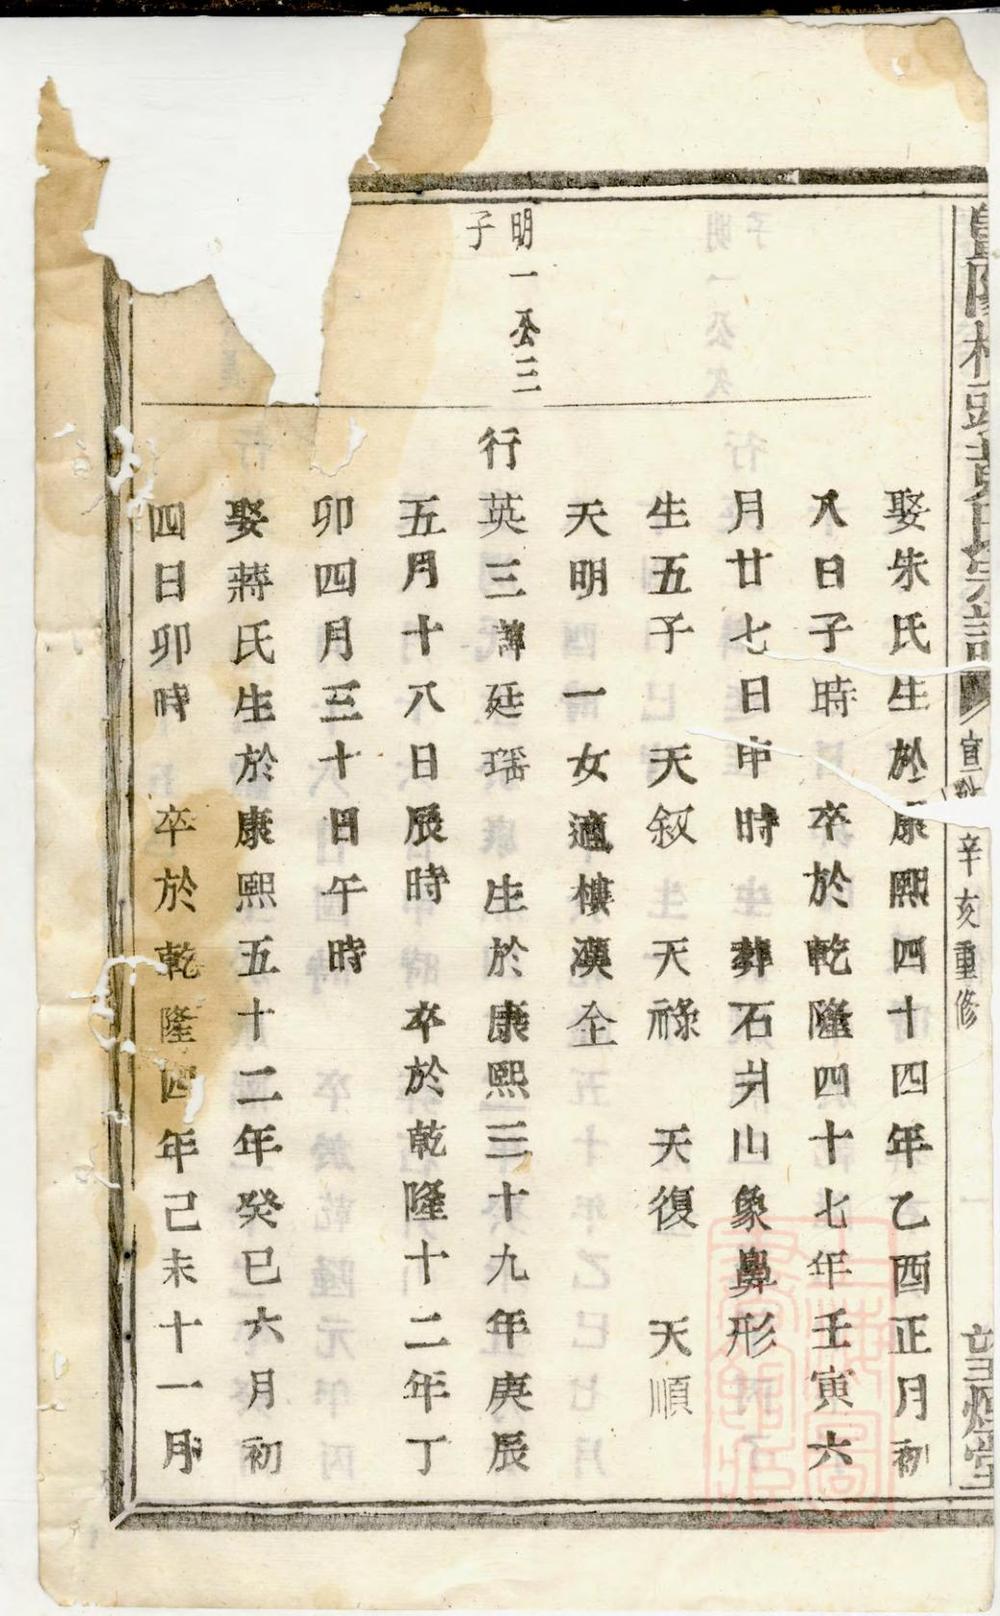 陽 頭黃氏宗譜 宣統辛亥重修
娶朱氏生於康熙四十四年乙酉正月初
八日子時 卒於乾隆四十七年壬寅六
月廿七日申時 葬石井山象鼻形
生五子 天敘 天祿 天復 天順
天明 一女適樓漢全
明一公三
子
行英三諱廷瑶 生於康熙三十九年庚辰
五月十八日辰時 卒於乾隆十二年丁
卯四月三十日午時
娶蔣氏生於康熙五十二年癸巳六月初
四日卯時 卒於乾隆四年己未十一月